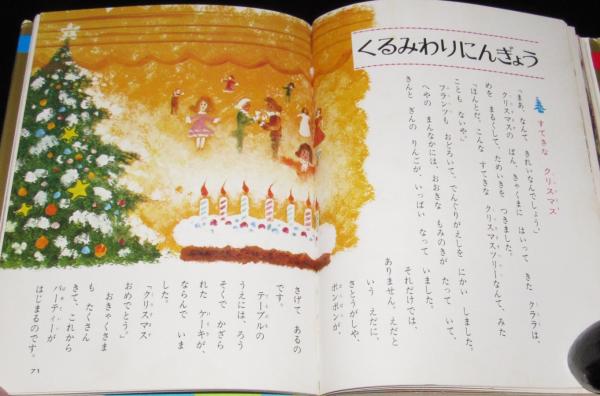 くるみわりにんぎょう
すてきな クリスマス
「まあ、なんて きれいなんでしょう。」
クリスマスの ばん、きゃくまに はいって きた クララは、
めを まるくして、ためいきを つきました。
「ほんとだ。こんな すてきな クリスマスツリーなんて、みた
ことも ないや。」
フランツも おどろいて、でんぐりがえしを にかい しました。
へやの まんなかには、おおきな もみのきが たって いて、
きんと ぎんの りんごが、いっぱい なって いました。
それだけでは、
ありません。えだと
いう えだに、
さとうがしや、
ボンボンが、
さげて あるの
です。
テーブルの
うえには、ろう
そくで かざら
れた ケーキが、
ならんで いま
した。
「クリスマス
おめでとう。」
おきゃくさま
も たくさん
きて、これから
パーティーが
はじまるのです。
71